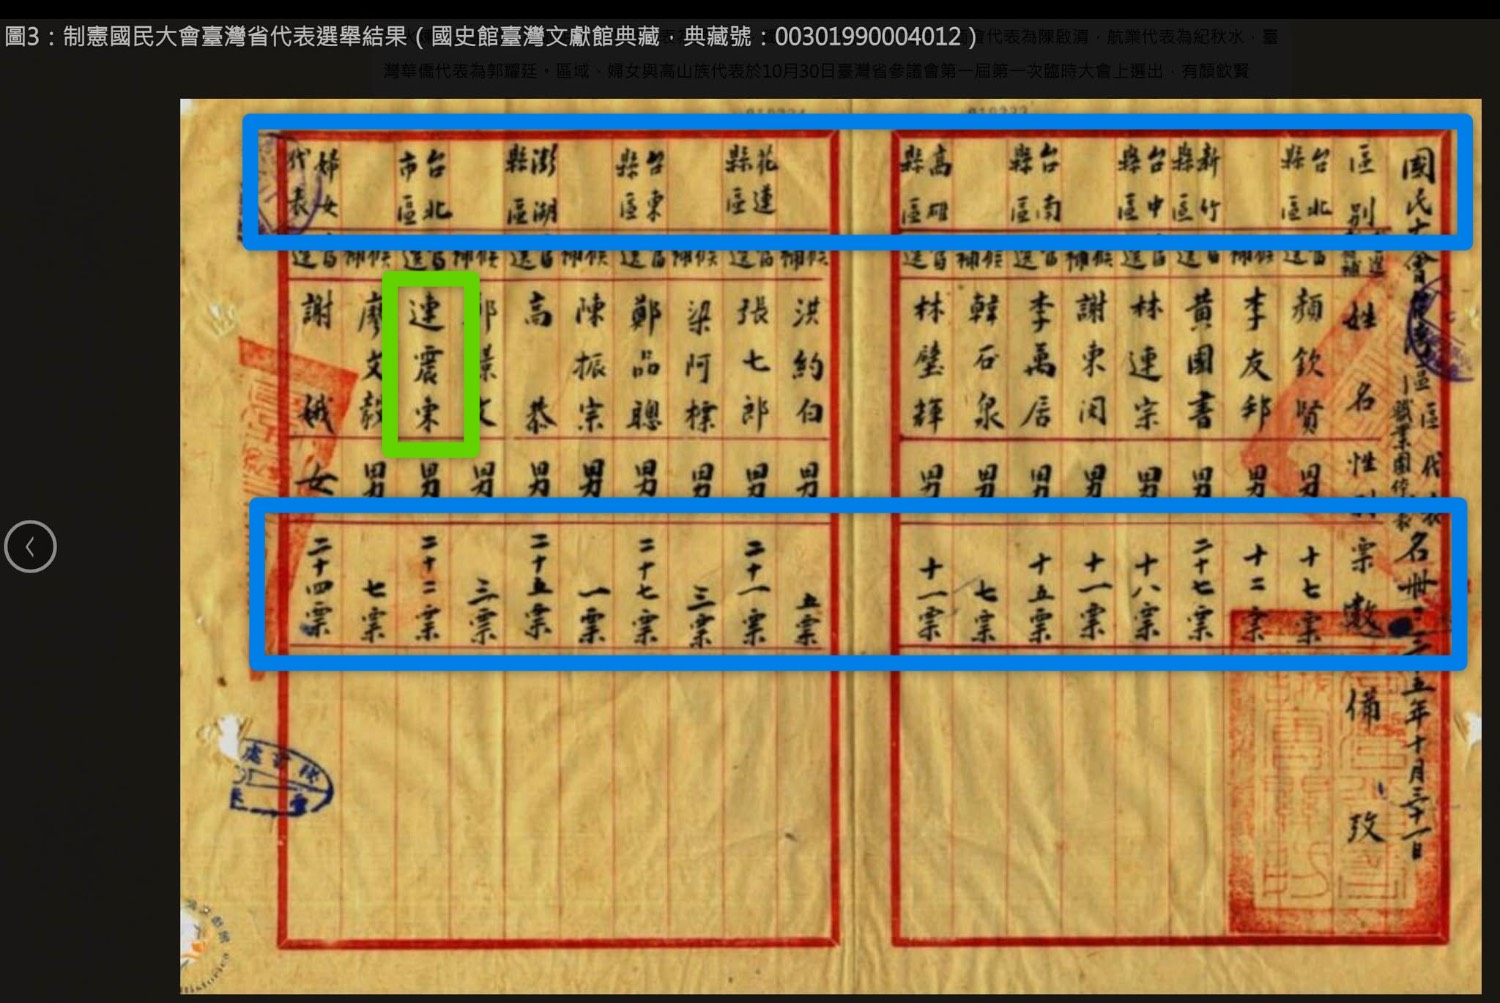 圖3：制憲國民大會臺灣省代表選舉結果（國史館臺灣文獻館典藏，典藏號：00301990004012）
會代表為陳啟清，航業代表為紀秋水，臺
灣華僑代表為郭耀廷。區域、婦女與高山族代表於10月30日臺灣省參議會第一屆第一次臨時大會上選出，有顏欽賢
國民大會臺灣區區代表名冊
職業團体代表
五年十月三十一日
區別 姓名 性別 票數 備攷
台北縣區 當選 顏欽賢 男 十七票
候補 李友邦 男 十二票
新竹縣區 黃國書 男 二十七票
台中縣區 當選 林連宗 男 十八票
候補 謝東閔 男 十一票
台南縣區 當選 李萬居 男 十五票
候補 韓石泉 男 七票
高雄縣區 當選 林璧輝 男 十一票
候補 洪約白 男 五票
花蓮縣區 當選 張七郎 男 二十一票
候補 梁阿標 男 三票
台東縣區 當選 鄭品聰 男 二十七票
候補 陳振宗 男 一票
澎湖縣區 當選 高恭 男 二十五票
候補 男 三票
台北市區 當選 連震東 男 二十二票
候補 廖文毅 男 七票
婦女代表 當選 謝娥 女 二十四票